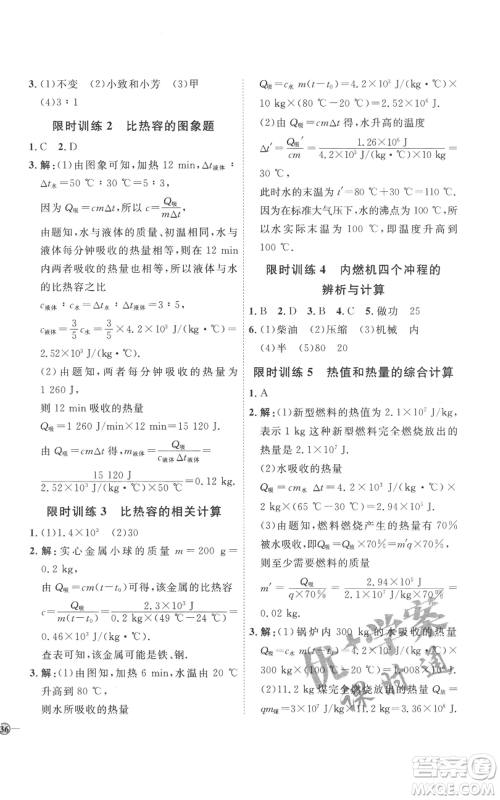 3. (1)不变 (2)小致和小芳 (3)甲
(4)3∶1
限时训练 2 比热容的图象题
1. C 2. D
3. 解: (1)由图象可知,加热 12 min, Δt液体∶
Δt水=50 ℃∶30 ℃=5∶3,
因为 Q吸=cmΔt,所以 c=Q吸/mΔt,
由题知,水与液体的质量、初温相同,水与
液体每分钟吸收的热量相同,则 12 min
内两者吸收的热量相同,所以
c液体∶c水=Δt水∶Δt液体=3∶5,
c液体=3/5 c水=3/5×4.2×10³ J/(kg·℃)=
2.52×10³ J/(kg·℃).
(2)由题知,两者每分钟吸收的热量为
1 260 J,
则 12 min 吸收的热量
Q吸=1 260 J×12=15 120 J,
由 Q吸=cmΔt 得,m液体=Q吸/c液体Δt液体=
15 120 J/2.52×10³ J/(kg·℃)×30 ℃=0.2 kg.
限时训练 3 比热容的相关计算
1. (1)1.4×10³ (2)30
2. 解:实心金属小球的质量 m=200 g=
0.2 kg,
由 Q吸=cm(t-t₀)得,该金属的比热容
c=Q吸/m(t-t₀)=2.3×10³ J/0.2 kg(49 ℃-24 ℃)=
0.46×10³ J/(kg·℃)
查表可知,该实心金属可能是铁.
3. 解:(1)由题意可知,水温由 20 ℃
升高到 70 ℃,
则水所吸收的热量
Q吸=c水m(t-t₀)=4.2×10³ J/(kg·℃)×
6 kg×(70 ℃-20 ℃)=1.26×10⁶ J.
(2)由题知,水升高的温度
Δt′=Q吸/cm=1.26×10⁶ J/4.2×10³ J/(kg·℃)×10 kg=
30 ℃,
此时水的末温为 t′=80 ℃+30 ℃=110 ℃,
因为在标准大气压下,水的沸点为 100 ℃,
所以水实际末温为 100 ℃,故水实际升高
的温度为 20 ℃.
限时训练 4 内燃机四个冲程的
辨析与计算
1. B 2. D 3. B 4. C 5. 做功 25
6. (1)柴油 (2)压缩 (3)机械 内
(4)半 (5)80 20
限时训练 5 热值和热量的综合计算
1. A
2. 解:(1)新型燃料的热值为 2.1×10⁷ J/kg,
表示 1 kg 的新型燃料完全燃烧放出的
热量为 2.1×10⁷ J.
(2)水吸收的热量
Q吸=c水m(t-t₀)=4.2×10³ J/(kg·℃)×
100 kg×(90 ℃-20 ℃)=2.94×
10⁷ J.
(3)由题知,燃料燃烧产生的热量有 70%
被水吸收,所以 Q吸=m′q×70%,
则至少需要燃料的质量
m′=Q吸/q×70%=2.94×10⁷ J/2.1×10⁷ J/kg×70%
=2 kg.
3. 解:(1)锅炉内 300 kg 的水吸收的热量
Q吸=c水m(t-t₀)=4.2×10³ J/(kg·℃)×
300 kg×80 ℃=1.008×10⁸ J.
(2)11.2 kg 煤完全燃烧放出的热量 Q放=
qm煤=3×10⁷ J/kg×11.2 kg=3.36×
36
优+学案
课时通